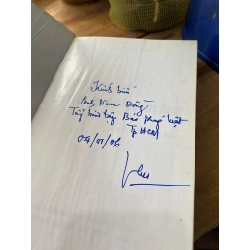 Kính biếu
Anh Nam Đồng
Tổng biên tập Báo Pháp luật
Tp HCM
04/01/06